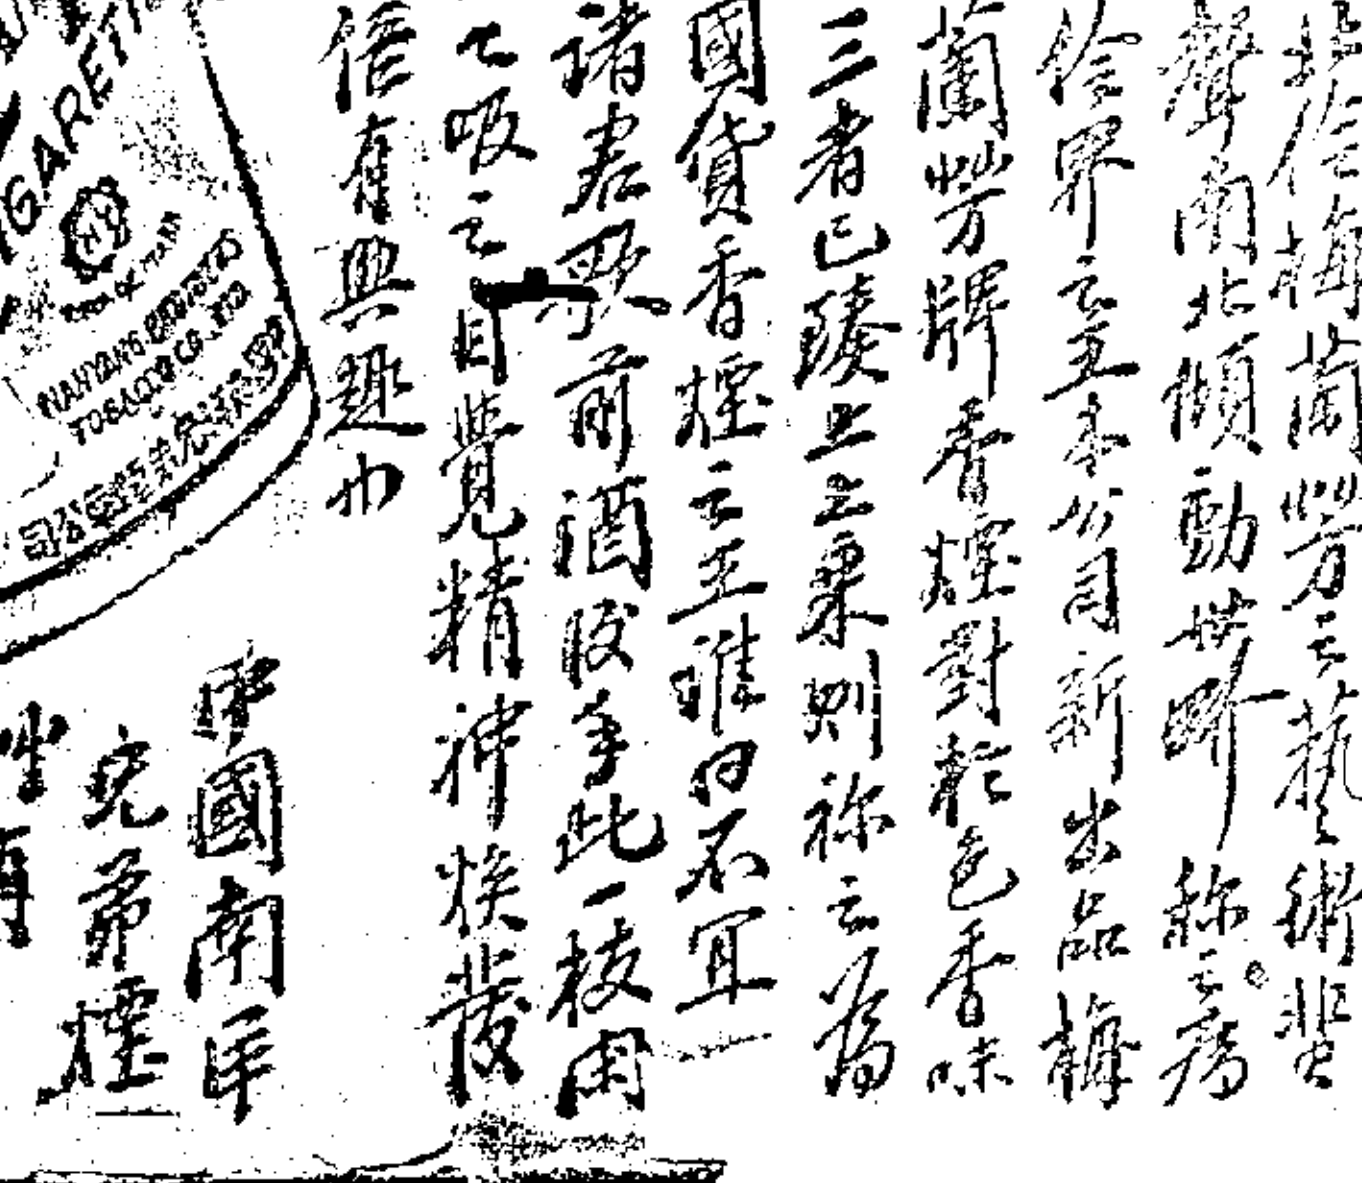 梅蘭芳之藝術蜚
聲南北傾動世界称之為
伶界之王本公司新出品梅
蘭芳牌香煙對於色香味
三者已臻上上乘則称之為
國貨香煙之王誰曰不宜
諸君歌前酒後手此一枝閒
吸之自覺精神煥發
倍有興趣也
中國南洋
兄弟煙
CIGARETTE
NANYANG BROTHERS
TOBACCO CO., LTD